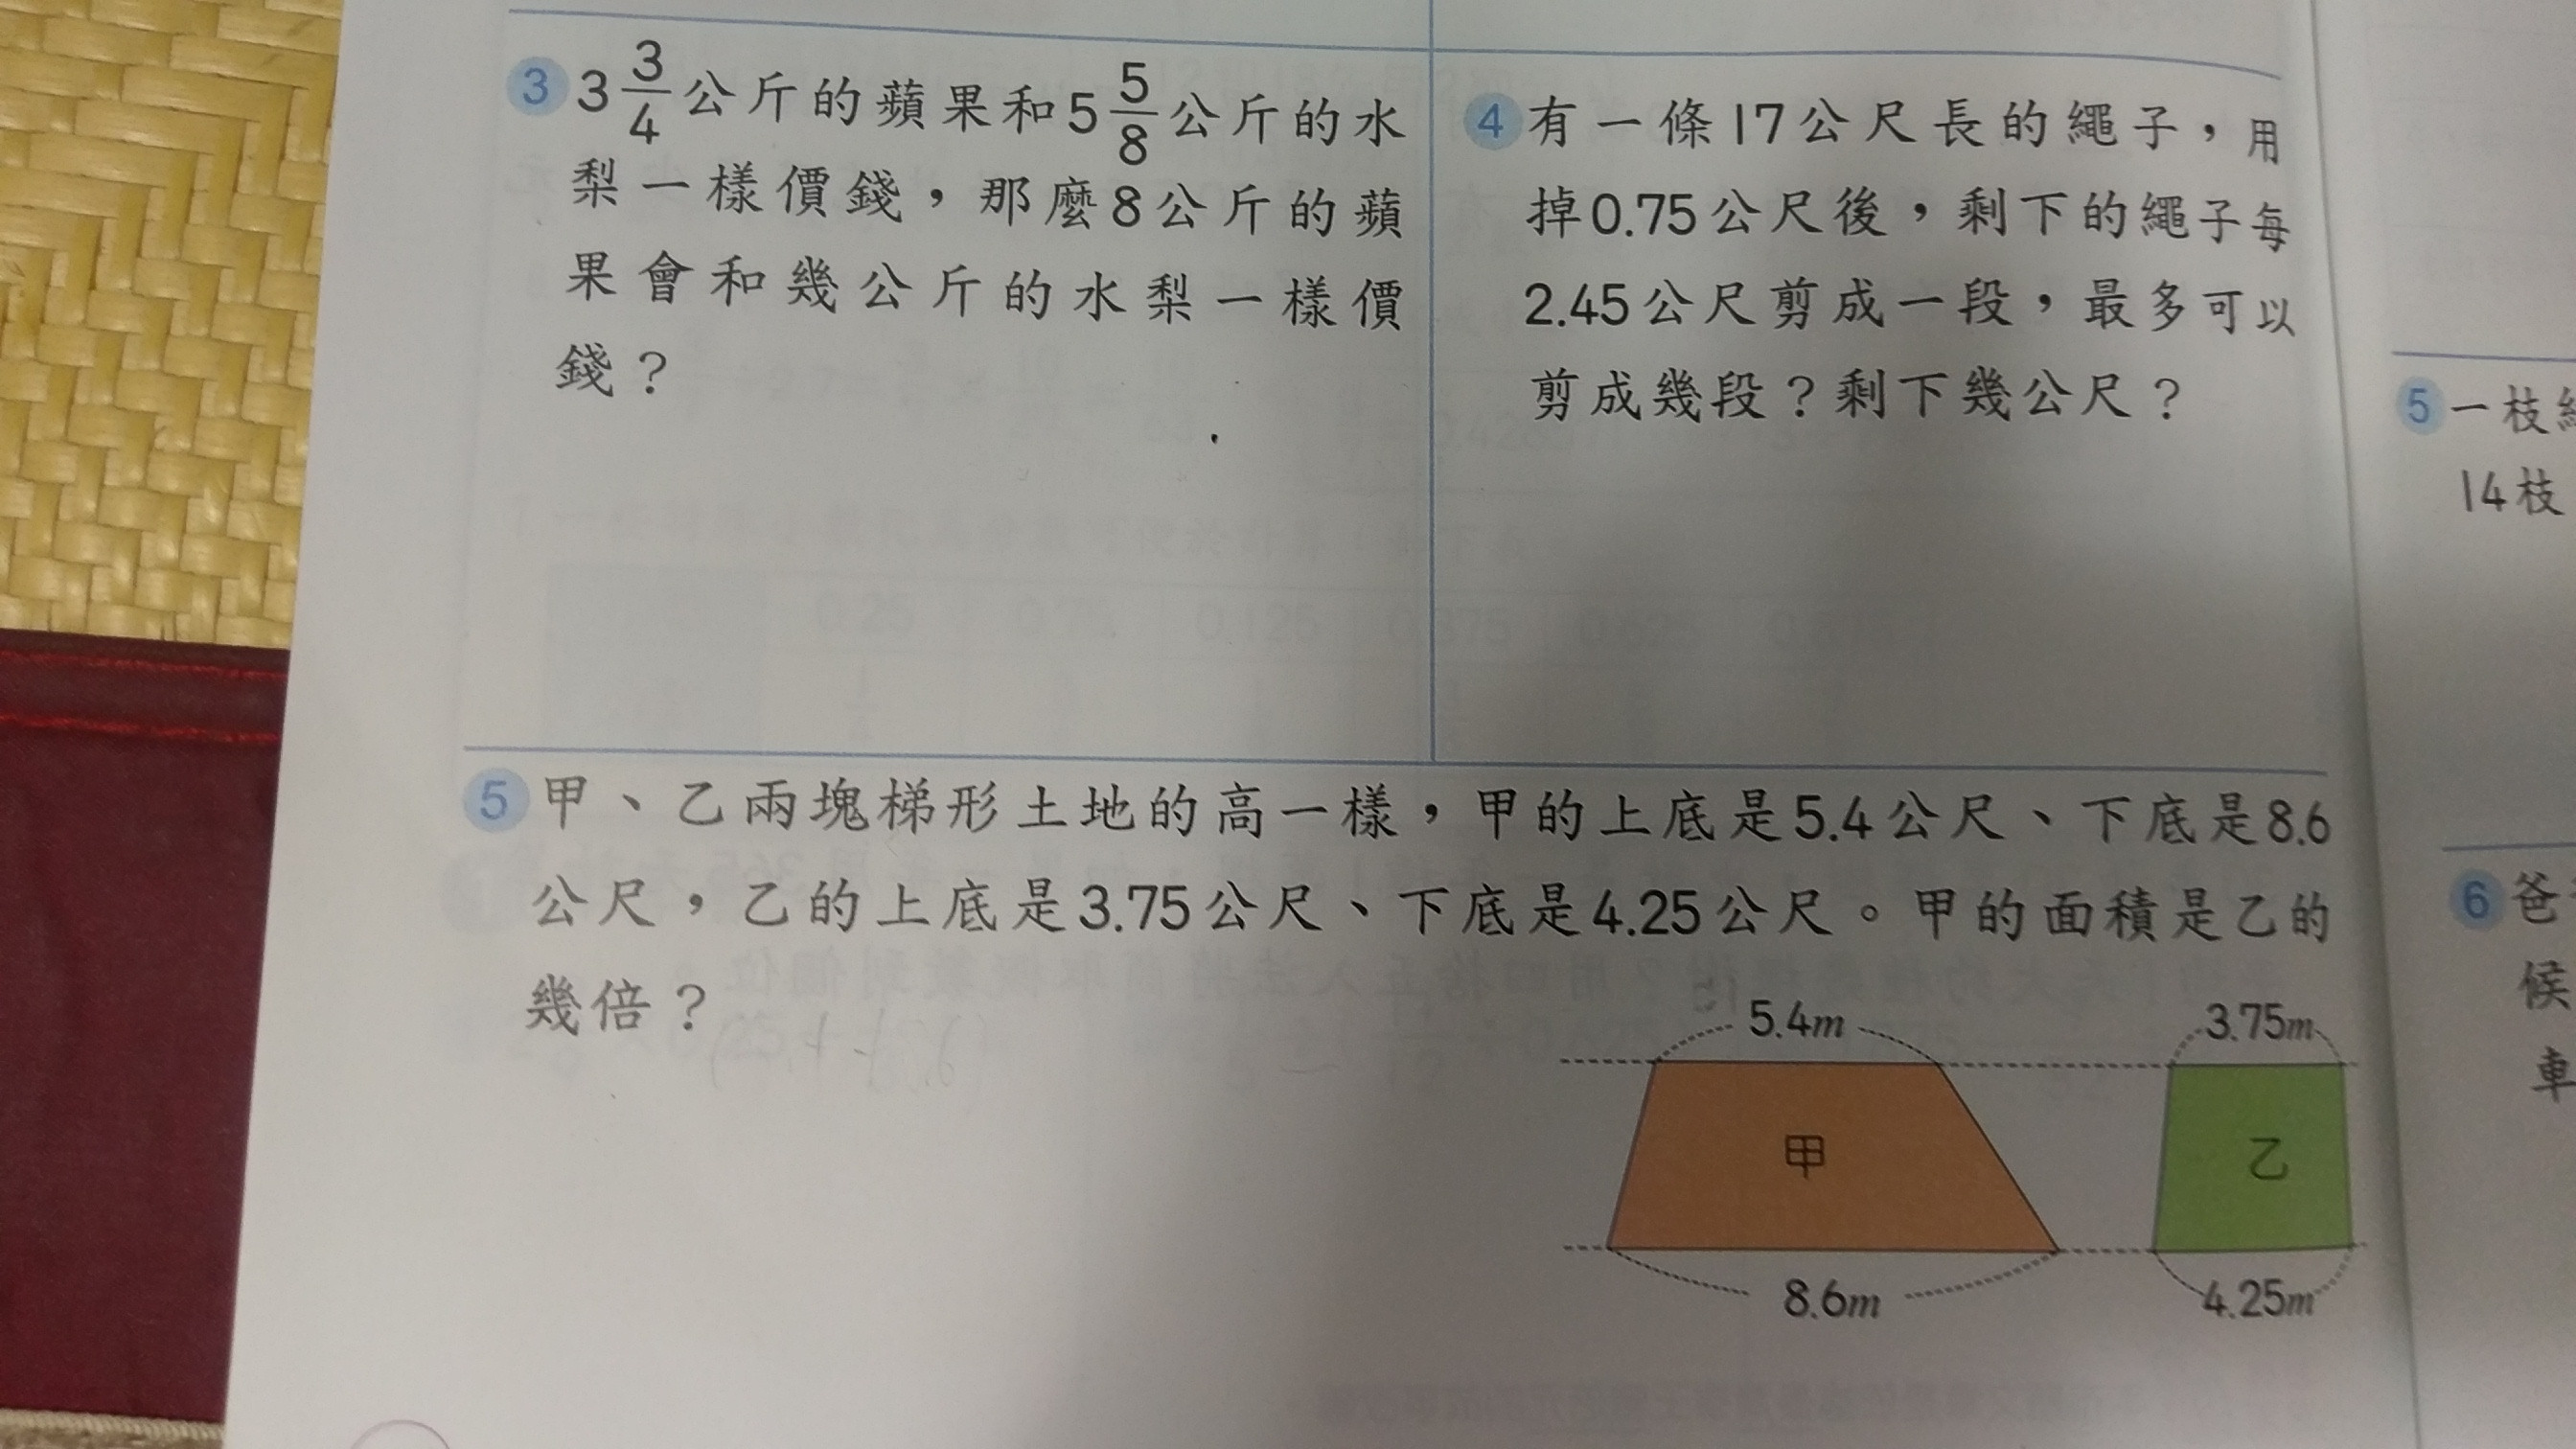 3 3 3/4 公斤的蘋果和5 5/8 公斤的水
梨一樣價錢，那麼8公斤的蘋
果會和幾公斤的水梨一樣價
錢？
4 有一條17公尺長的繩子，用
掉0.75公尺後，剩下的繩子每
2.45公尺剪成一段，最多可以
剪成幾段？剩下幾公尺？
5 甲、乙兩塊梯形土地的高一樣，甲的上底是5.4公尺、下底是8.6
公尺，乙的上底是3.75公尺、下底是4.25公尺。甲的面積是乙的
幾倍？
5.4m
3.75m
甲
乙
8.6m
4.25m
5 一枝
14枝
6 爸
候
車